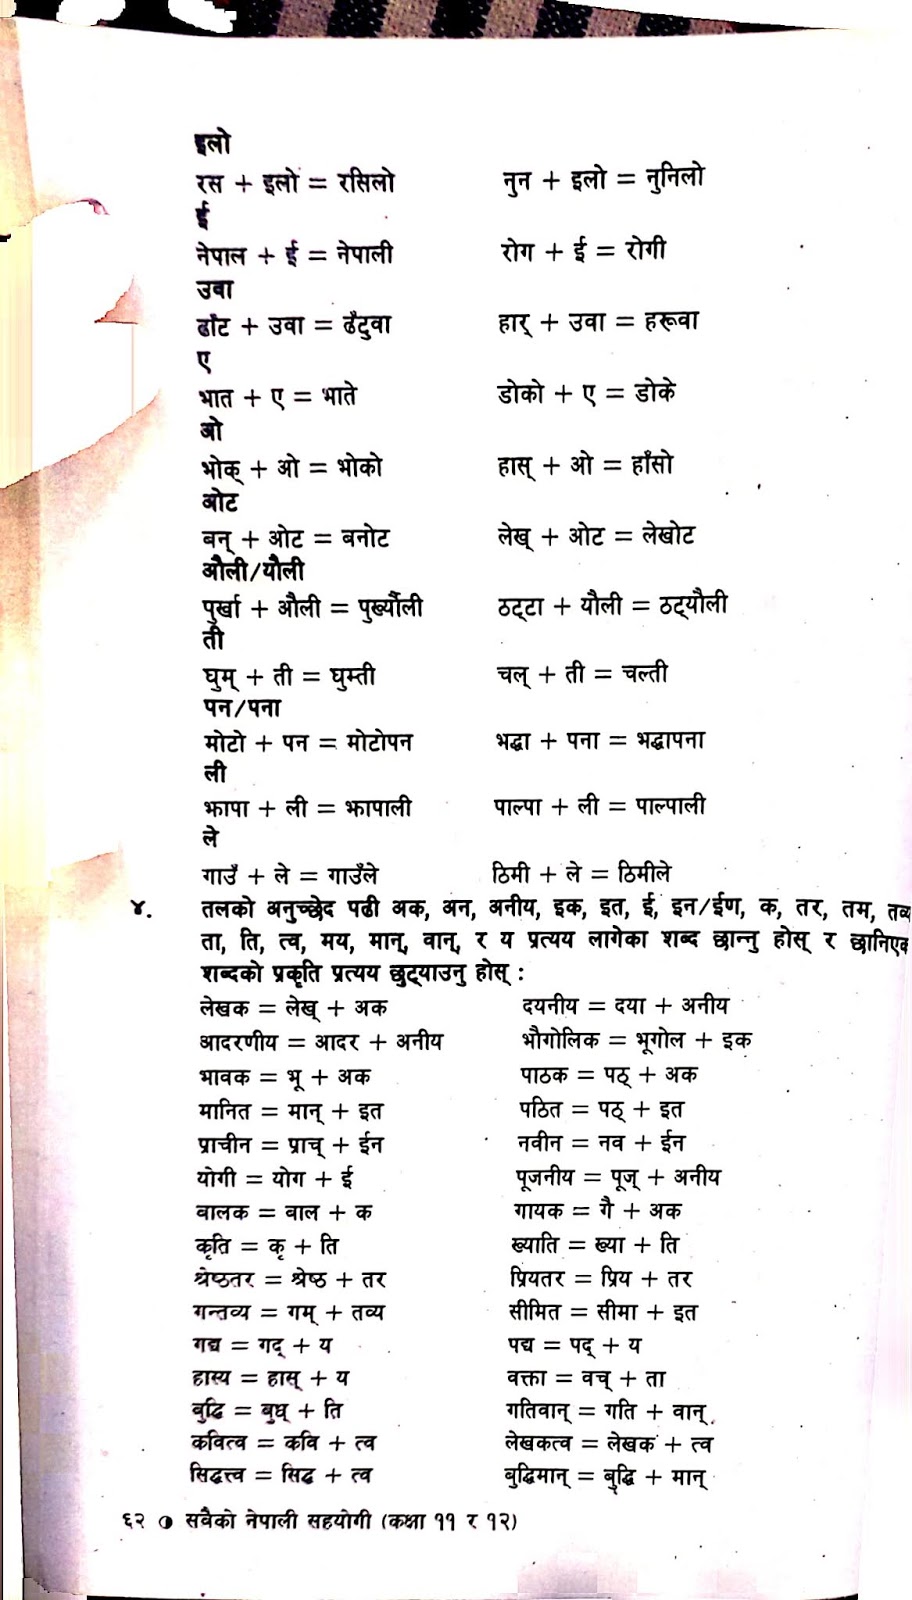 इलो
रस + इलो = रसिलो नुन + इलो = नुनिलो
ई
नेपाल + ई = नेपाली रोग + ई = रोगी
उवा
ढाँट + उवा = ढँटुवा हार् + उवा = हरूवा
ए
भात + ए = भाते डोको + ए = डोके
ओ
भोक् + ओ = भोको हास् + ओ = हाँसो
ओट
बन् + ओट = बनोट लेख् + ओट = लेखोट
औली/यौली
पुर्खा + औली = पुर्ख्यौली ठट्टा + यौली = ठट्यौली
ती
घुम् + ती = घुम्ती चल् + ती = चल्ती
पन/पना
मोटो + पन = मोटोपन भद्धा + पना = भद्धापना
ली
झापा + ली = झापाली पाल्पा + ली = पाल्पाली
ले
गाउँ + ले = गाउँले ठिमी + ले = ठिमीले
४. तलको अनुच्छेद पढी अक, अन, अनीय, इक, इत, ई, इन/ईण, क, तर, तम, तव्य
ता, ति, त्व, मय, मान्, वान्, र य प्रत्यय लागेका शब्द छान्नु होस् र छानिएक
शब्दको प्रकृति प्रत्यय छुट्याउनु होस् :
लेखक = लेख् + अक दयनीय = दया + अनीय
आदरणीय = आदर + अनीय भौगोलिक = भूगोल + इक
भावक = भू + अक पाठक = पठ् + अक
मानित = मान् + इत पठित = पठ् + इत
प्राचीन = प्राच् + ईन नवीन = नव + ईन
योगी = योग + ई पूजनीय = पूज् + अनीय
बालक = बाल + क गायक = गै + अक
कृति = कृ + ति ख्याति = ख्या + ति
श्रेष्ठतर = श्रेष्ठ + तर प्रियतर = प्रिय + तर
गन्तव्य = गम् + तव्य सीमित = सीमा + इत
गद्य = गद् + य पद्य = पद् + य
हास्य = हास् + य वक्ता = वच् + ता
बुद्धि = बुध् + ति गतिवान् = गति + वान्
कवित्व = कवि + त्व लेखकत्व = लेखक + त्व
सिद्धत्त्व = सिद्ध + त्व बुद्धिमान् = बुद्धि + मान्
६२ सबैको नेपाली सहयोगी (कक्षा ११ र १२)